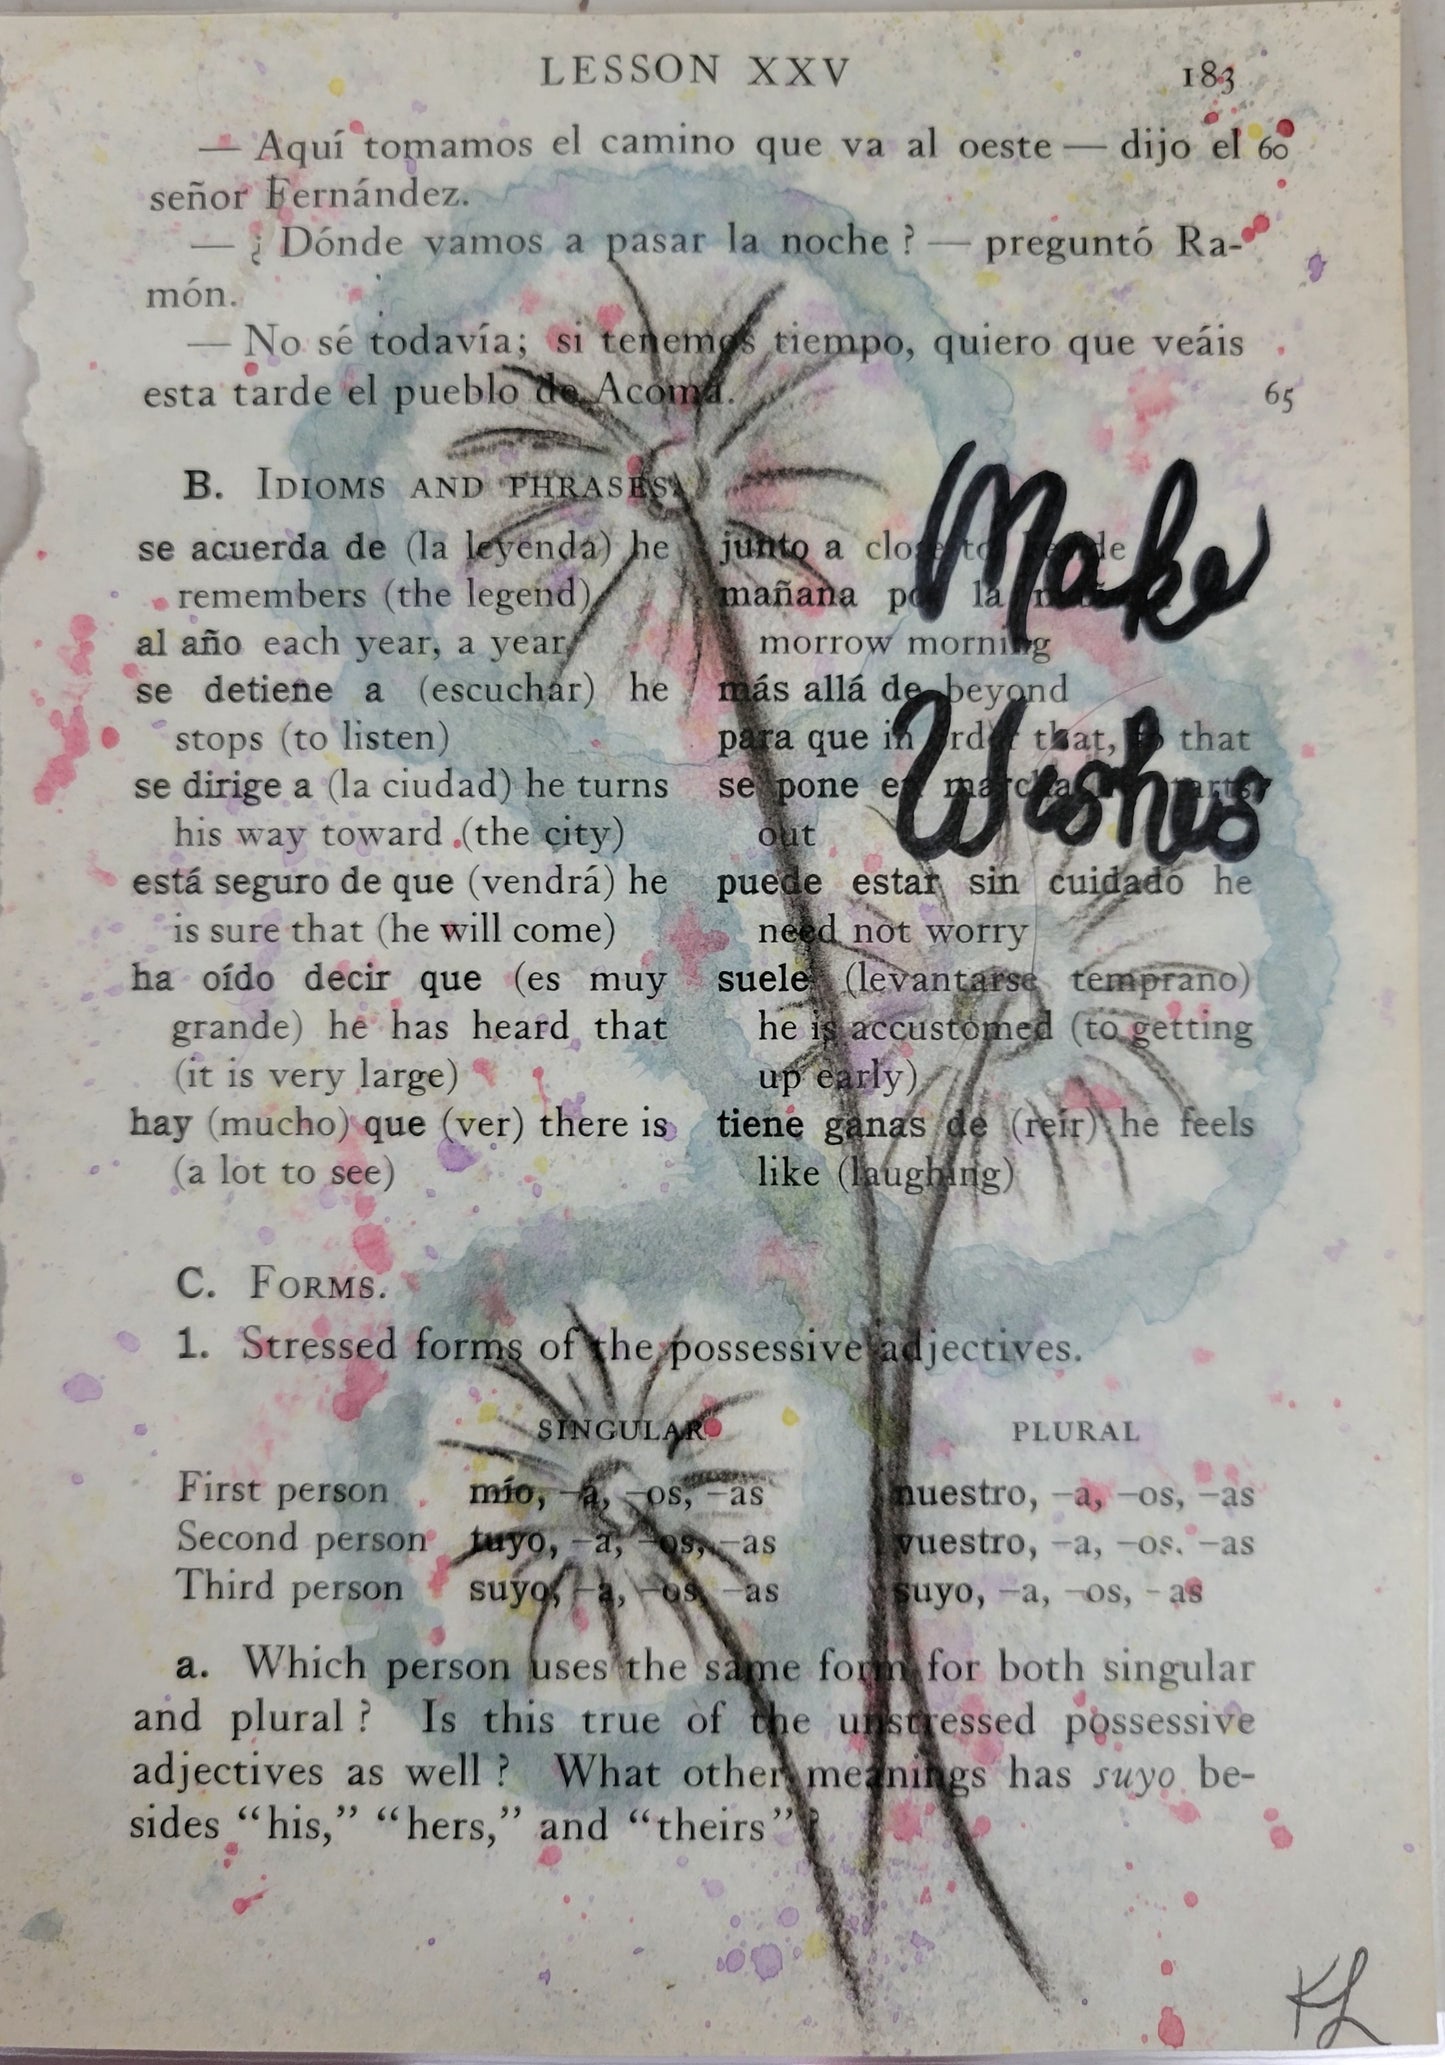 LESSON XXV 183
— Aquí tomamos el camino que va al oeste — dijo el 60
señor Fernández.
— ¿ Dónde vamos a pasar la noche ? — preguntó Ra-
món.
— No sé todavía; si tenemos tiempo, quiero que veáis
esta tarde el pueblo de Acoma. 65
B. IDIOMS AND PHRASES.
se acuerda de (la leyenda) he
remembers (the legend)
al año each year, a year
se detiene a (escuchar) he
stops (to listen)
se dirige a (la ciudad) he turns
his way toward (the city)
está seguro de que (vendrá) he
is sure that (he will come)
ha oído decir que (es muy
grande) he has heard that
(it is very large)
hay (mucho) que (ver) there is
(a lot to see)
junto a close to,
mañana por la
morrow morning
más allá de beyond
para que in order that, so that
se pone en marcha starts
out
puede estar sin cuidado he
need not worry
suele (levantarse temprano)
he is accustomed (to getting
up early)
tiene ganas de (reír) he feels
like (laughing)
Make
Wishes
C. FORMS.
1. Stressed forms of the possessive adjectives.
SINGULAR PLURAL
First person mío, –a, –os, –as nuestro, –a, –os, –as
Second person tuyo, –a, –os, –as vuestro, –a, –os. –as
Third person suyo, –a, –os, –as suyo, –a, –os, –as
a. Which person uses the same form for both singular
and plural ? Is this true of the unstressed possessive
adjectives as well ? What other meanings has suyo be-
sides “his,” “hers,” and “theirs” ?
KL